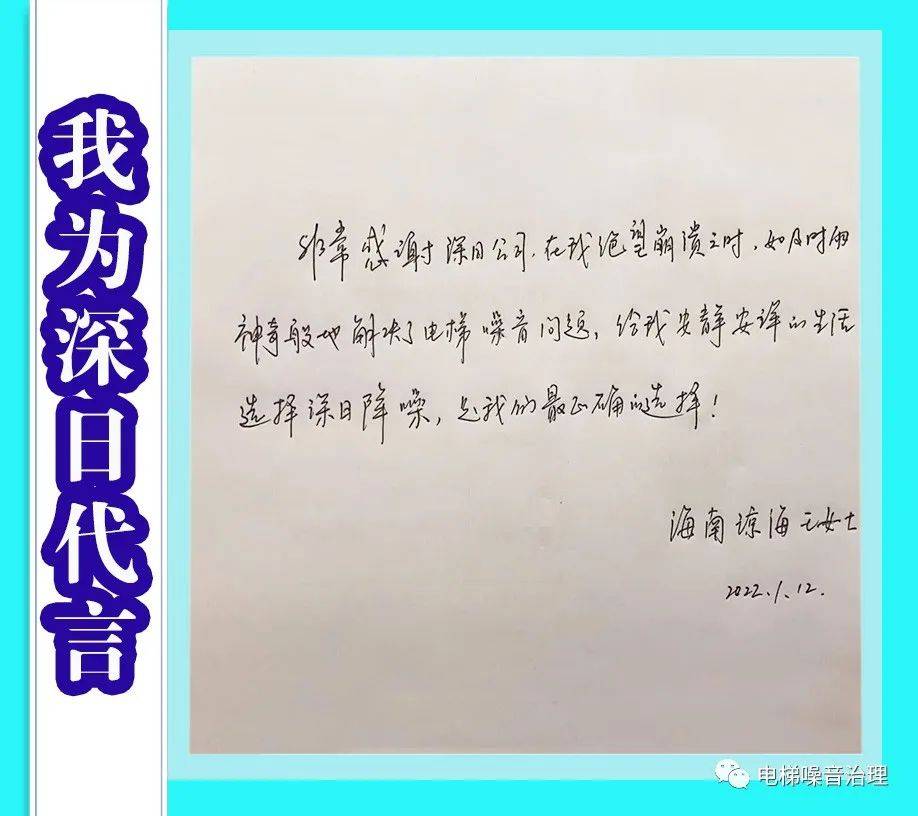 我为深日代言
非常感谢深日公司，在我绝望崩溃之时，如及时雨
神奇般地解决了电梯噪音问题，给我安静安详的生活
选择深日降噪，是我们最正确的选择！
海南琼海王女士
2022.1.12.
电梯噪音治理